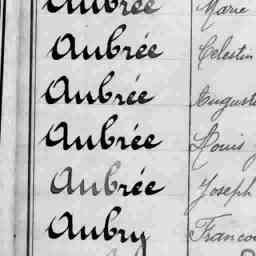 Aubrée Marie
Aubrée Celestin
Aubrée Auguste
Aubrée Louis
Aubrée Joseph
Aubry Francois